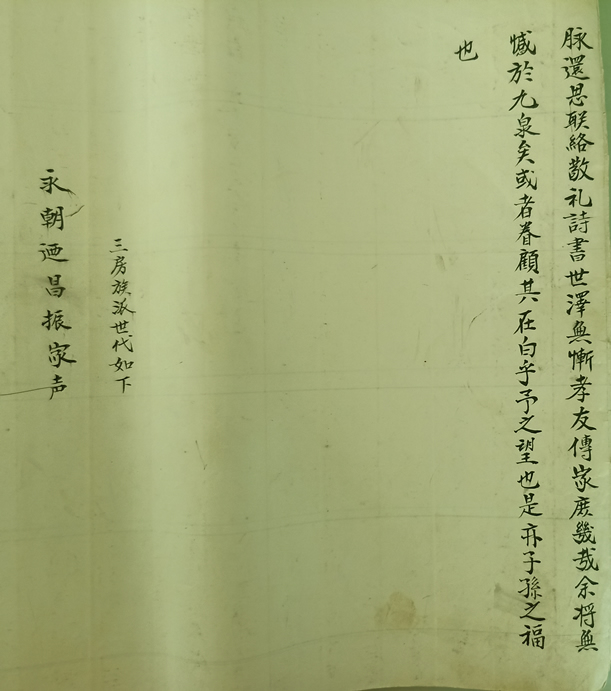 脉還思联絡敬礼詩書世澤無慚孝友傳家庶幾哉余将無
憾於九泉矣或者眷顧其在白乎予之望也是亦子孫之福
也
三房族派世代如下
永朝廼昌振家声